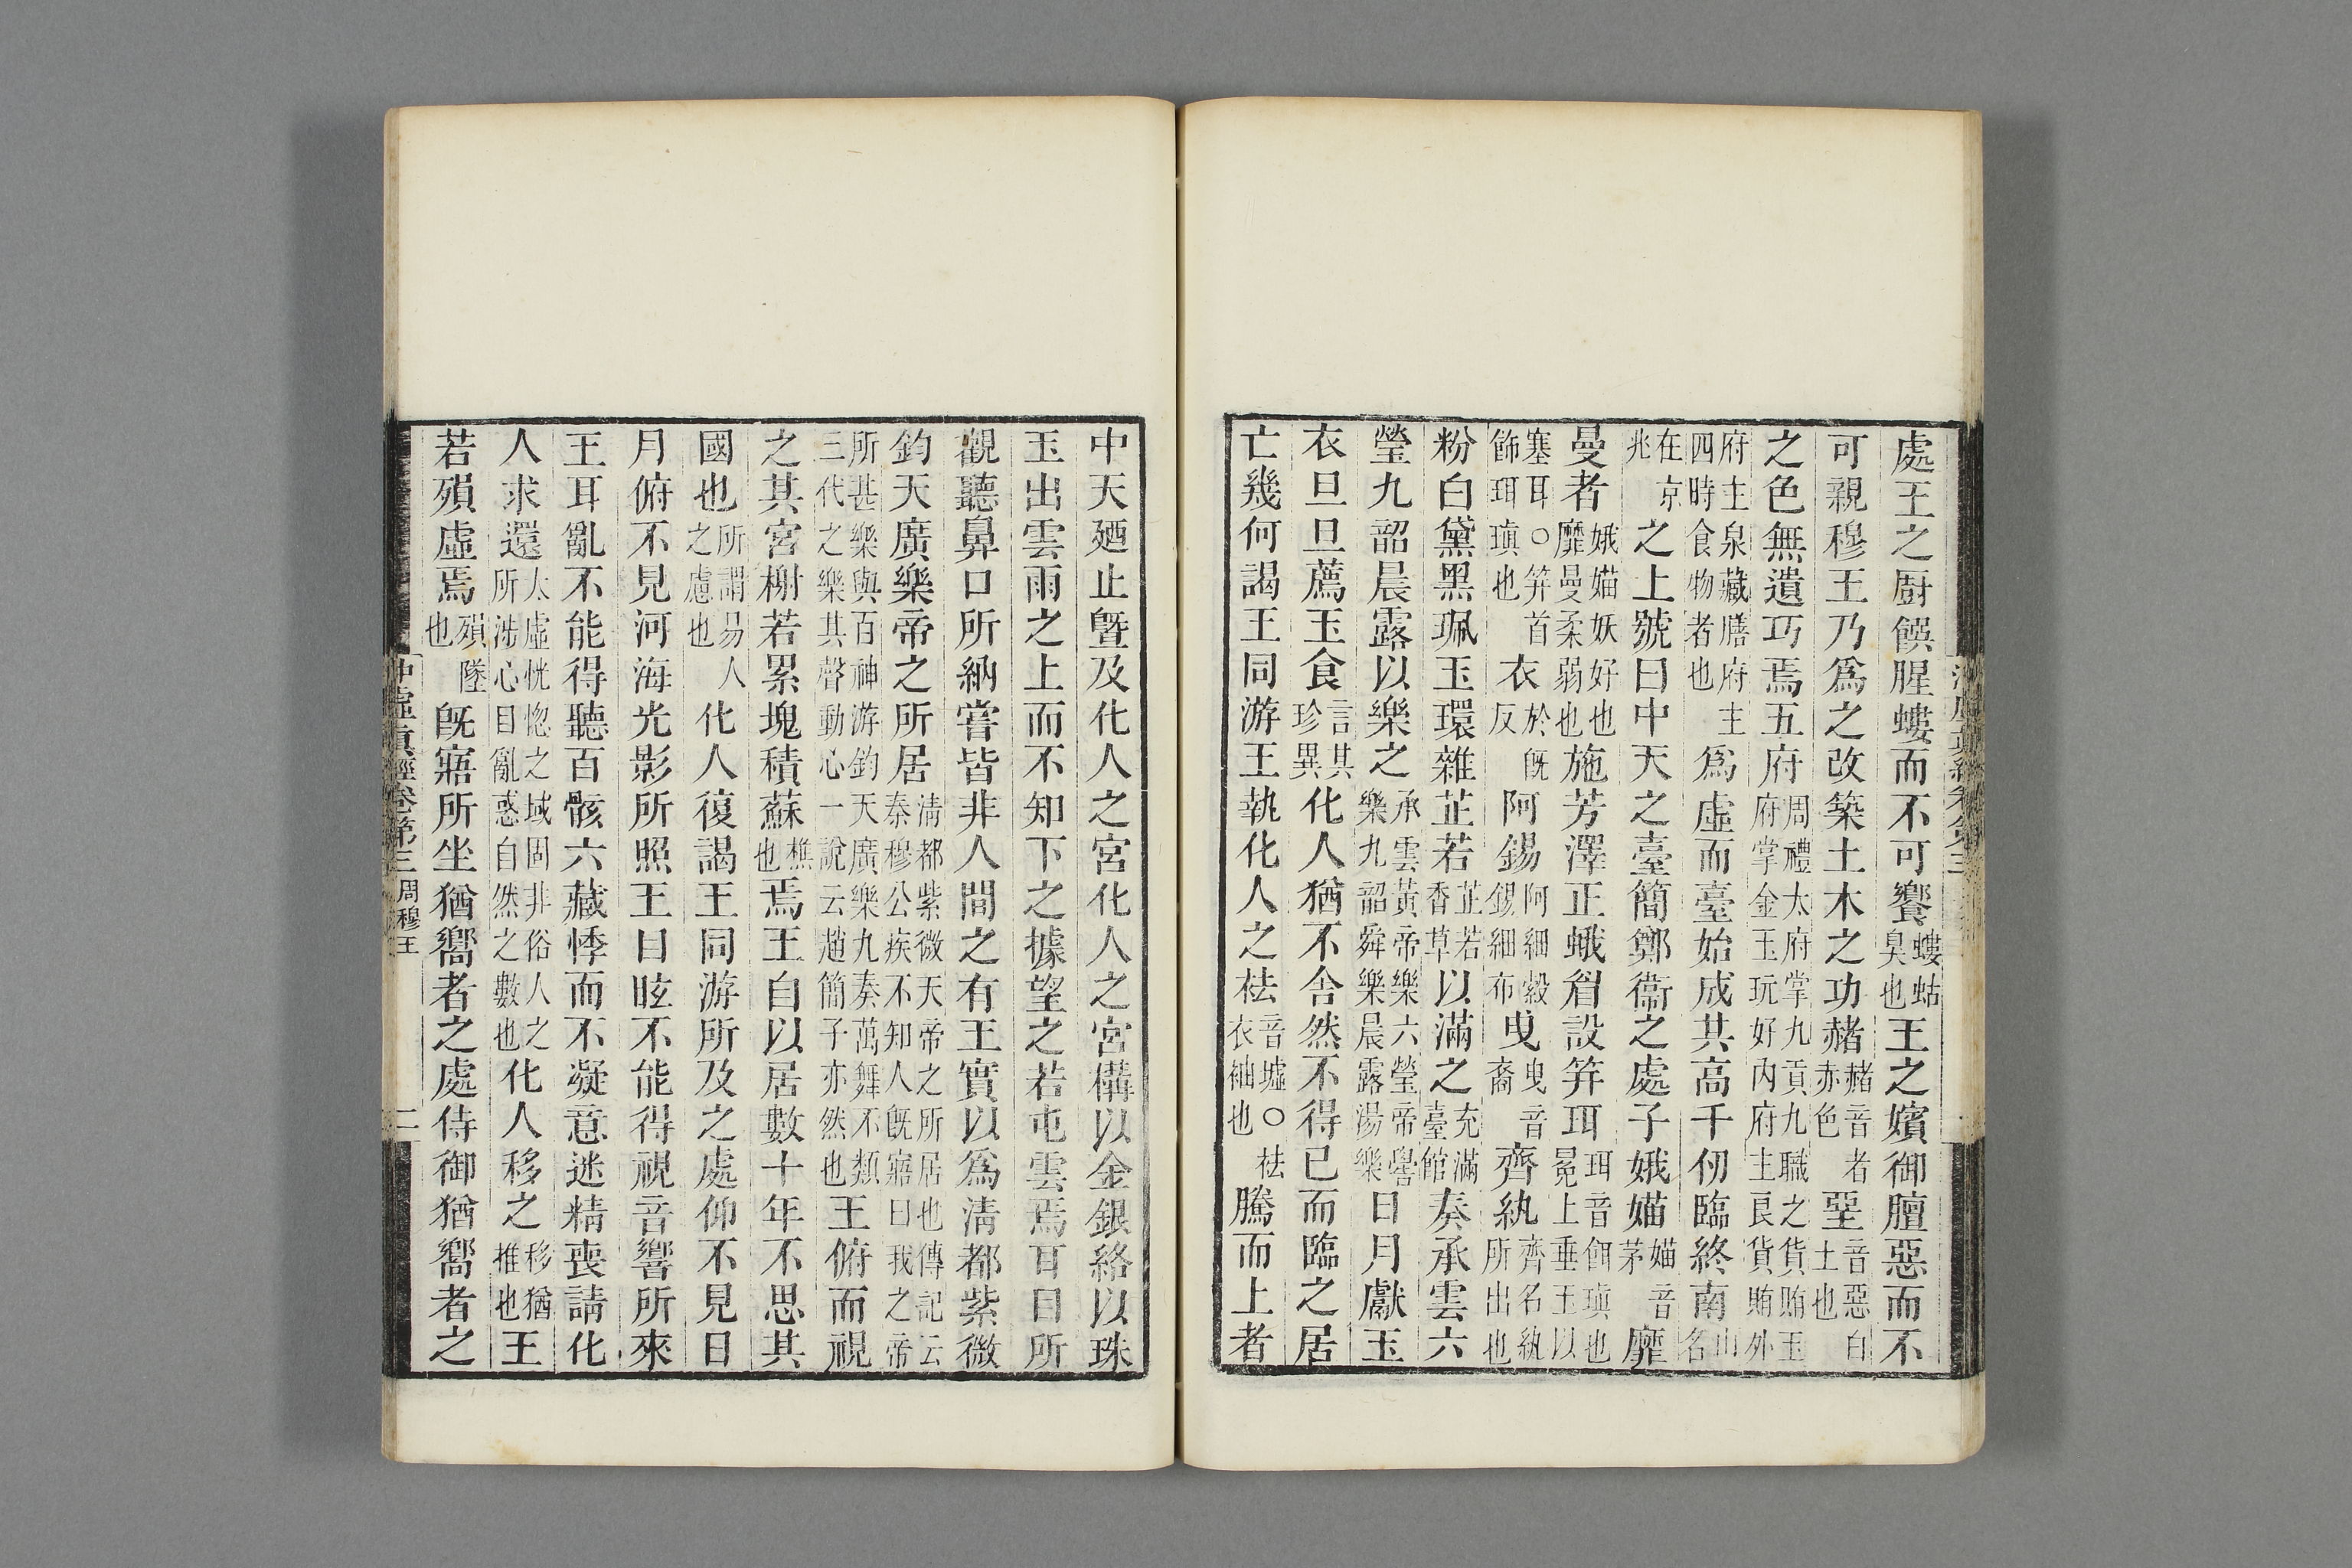 處王之厨饌腥螻而不可饗螻蛄臭也王之嬪御膻惡而不
可親穆王乃爲之改築土木之功赭赭音者赤色堊音惡白土也
之色無遺巧焉五府周禮太府掌九貢九職之貨賄玉府掌金玉玩好內府主良貨賄外
府主泉藏膳府主四時食物者也爲虛而臺始成其高千仞臨終南山名
在京兆之上號曰中天之臺簡鄭衞之處子娥媌媌音茅靡
曼者娥媌妖好也靡曼柔弱也施芳澤正蛾眉設筓珥珥音餌瑱也冕上垂玉以
塞耳○筓首飾珥瑱也衣於旣反阿錫阿細縠錫細布曳曳音裔齊紈齊名紈所出也
粉白黛黑珮玉環雜芷若芷若香草以滿之充滿臺館奏承雲六
瑩九韶晨露以樂之承雲黃帝樂六瑩帝嚳樂九韶舜樂晨露湯樂日月獻玉
衣旦旦薦玉食言其珍異化人猶不舍然不得已而臨之居
亡幾何謁王同游王執化人之袪音墟○袪衣袖也騰而上者
中天廼止曁及化人之宮化人之宮構以金銀絡以珠
玉出雲雨之上而不知下之據望之若屯雲焉耳目所
觀聽鼻口所納嘗皆非人間之有王實以爲淸都紫微
鈞天廣樂帝之所居淸都紫微天帝之所居也傳記云秦穆公疾不知人旣寤曰我之帝
所甚樂與百神游鈞天廣樂九奏萬舞不類三代之樂其聲動心一說云趙簡子亦然也王俯而視
之其宮榭若累塊積蘇樵也焉王自以居數十年不思其
國也所謂易人之慮也化人復謁王同游所及之處仰不見日
月俯不見河海光影所照王目眩不能得視音響所來
王耳亂不能得聽百骸六藏悸而不凝意迷精喪請化
人求還太虛恍惚之域固非俗人之所涉心目亂惑自然之數也化人移之移猶推也王
若殞虛焉殞墜也旣寤所坐猶嚮者之處侍御猶嚮者之
沖虛眞經卷第三 周穆王 二